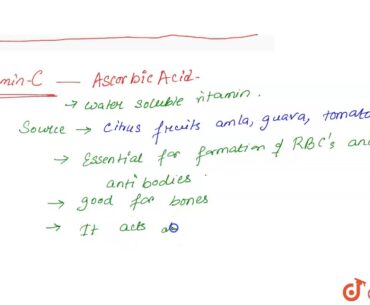 min-C — Ascorbic Acid-
→ Water soluble vitamin.
Source → Citrus fruits amla, guava, tomato
→ Essential for formation of RBC's and
antibodies.
→ good for bones
→ It acts as
d